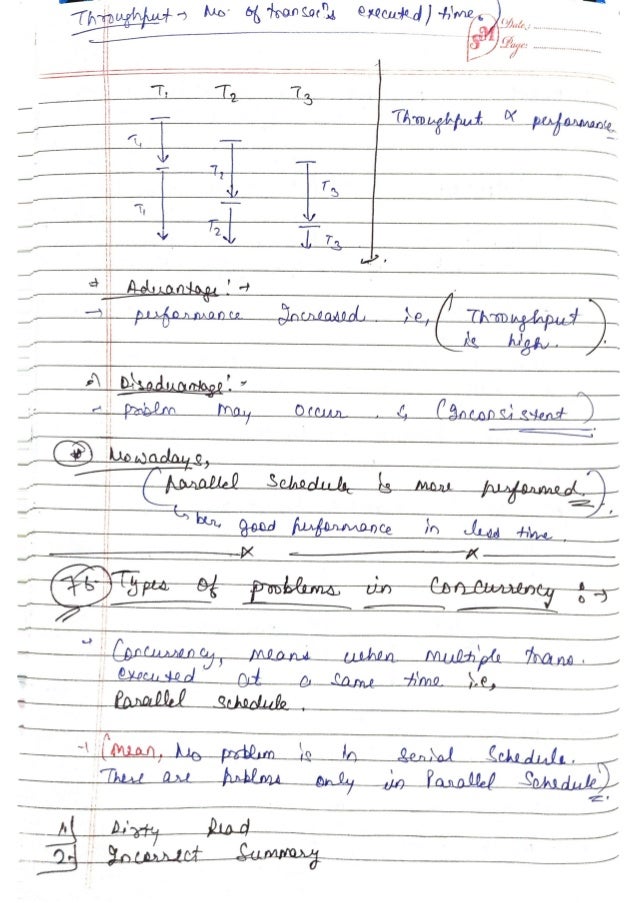 Throughput → No. of transacⁿs executed / time.
SM Date:
Page:
T₁ T₂ T₃
Throughput ∝ performance
T₁
T₂
T₃
T₁
T₂
T₃
* Advantage! →
→ performance Increased i.e, (Throughput
is high.)
Disadvantage! -
- problm may occur. & (Inconsistent)
* Nowadays,
(Parallel Schedule is more performed.)
↳ bcz good performance in less time.
76. Types of problems in Concurrency : →
Concurrency, means when multiple trans.
executed at a same time i.e,
Parallel Schedule.
(Mean, No problem is in Serial Schedule.
There are problms only in Parallel Schedule)
1. Dirty Read
2. Incorrect Summary